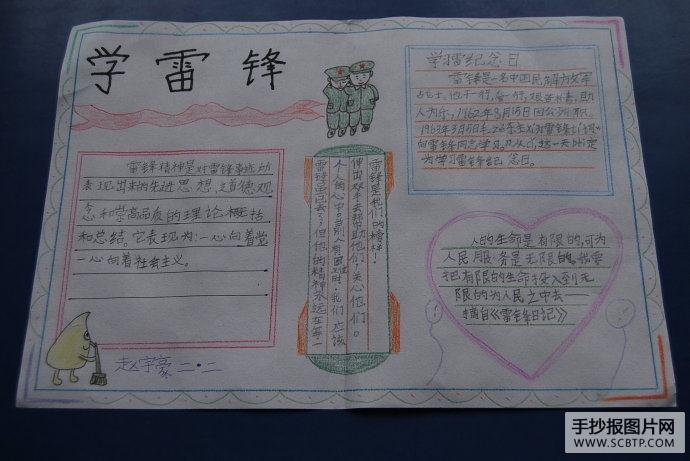 学雷锋
学雷纪念日
雷锋是一名中国民解放军
占士,他干一行,爱一行,艰苦朴素,助
人为乐,1962年8月15日因公殉职。
1963年3月5日毛
向雷锋同志学习
为学习雷锋纪念日。
雷锋精神是对雷锋事迹所
表现出来的先进思想,道德观
念和崇高品质的理论概括
和总结。它表现为:一心向着党
一心向着社会主义。
雷锋是我们的榜样!
伸出双手去帮助他们!关心他们。
个人的心中。当别人有困难时,我们应该
雷锋虽已去了,但他的精神永远在每一
人的生命是有限的,可为
人民服务是无限的,我要
把有限的生命投入到无
限的为人民之中去——
摘自《雷锋日记》
赵宇豪 二·二
手抄报图片网
WWW.SCBTP.COM